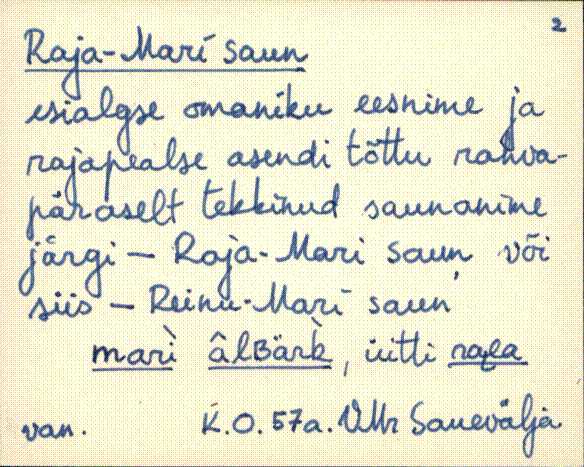 2
Raja-Mari saun
esialgse omaniku eesnime ja
rajapealse asendi tõttu rahva-
päraselt tekkinud saunanime
järgi – Raja-Mari saun või
siis – Reinu-Mari saun
marì̬ âlʙär̀k, iitti
van. K.O. 57a. VMr Sauevälja